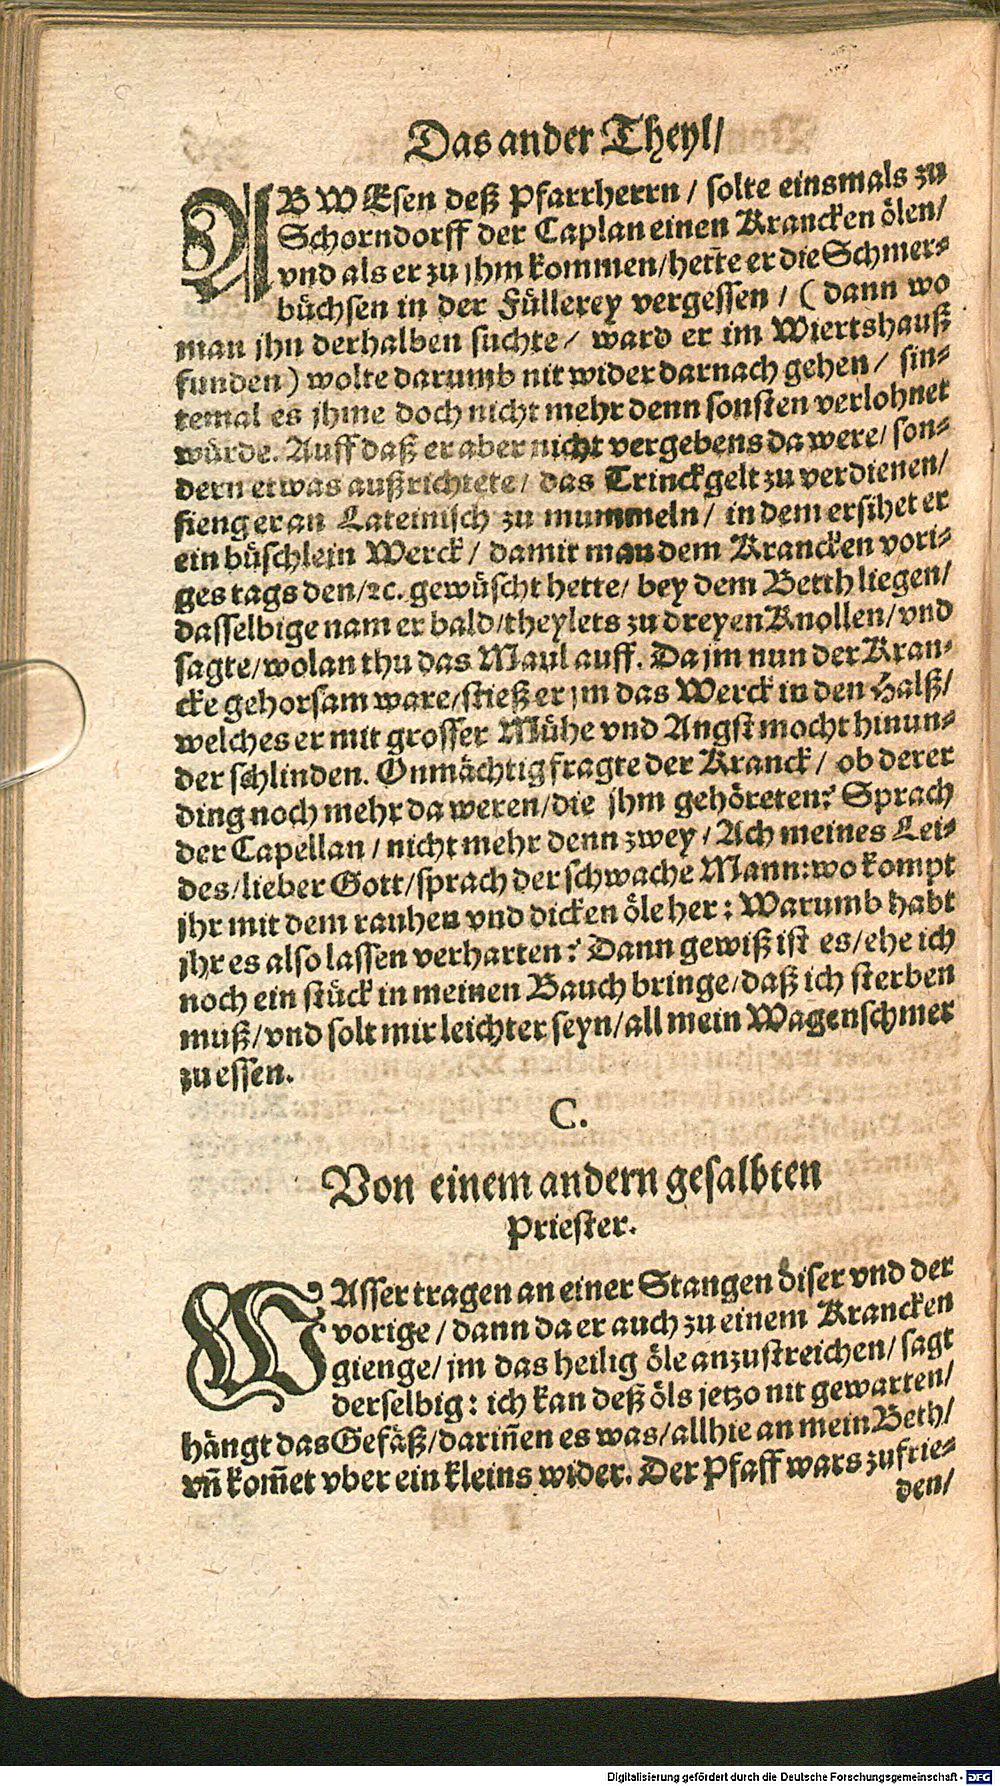 Das ander Theyl/
ABWEsen deß Pfarrherrn / solte einsmals zu
Schorndorff der Caplan einen Krancken ölen/
vnd als er zu jhm kommen/hette er die Schmer⸗
büchsen in der Füllerey vergessen / ( dann wo
man jhn derhalben suchte / ward er im Wiertshauß
funden ) wolte darumb nit wider darnach gehen / sin⸗
temal es jhme doch nicht mehr denn sonsten verlohnet
würde. Auff daß er aber nicht vergebens da were/ son⸗
dern etwas außrichtete/ das Trinckgelt zu verdienen/
fieng er an Lateinisch zu mummeln/ in dem ersihet er
ein büschlein Werck / damit man dem Krancken vori⸗
ges tags den/ꝛc. gewüscht hette/ bey dem Betth liegen/
dasselbige nam er bald/theylets zu dreyen Knollen/vnd
sagte/wolan thu das Maul auff. Da jm nun der Kran⸗
cke gehorsam ware/stieß er jm das Werck in den Halß/
welches er mit grosser Mühe vnd Angst mocht hinun⸗
der schlinden. Onmächtig fragte der Kranck / ob derer
ding noch mehr da weren/die jhm gehöreten? Sprach
der Capellan / nicht mehr denn zwey / Ach meines Lei⸗
des/lieber Gott/sprach der schwache Mann:wo kompt
jhr mit dem rauhen vnd dicken öle her : Warumb habt
jhr es also lassen verharten? Dann gewiß ist es/ehe ich
noch ein stück in meinen Bauch bringe/daß ich sterben
muß/vnd solt mir leichter seyn/all mein Wagenschmer
zu essen.
C.
Von einem andern gesalbten
Priester.
WAsser tragen an einer Stangen diser vnd der
vorige / dann da er auch zu einem Krancken
gienge/ jm das heilig öle anzustreichen/ sagt
derselbig : ich kan deß öls jetzo nit gewarten/
hängt das Gefäß/dariñen es was/allhie an mein Beth/
vñ kom̃et vber ein kleins wider. Der Pfaff wars zufrie⸗
den/
Digitalisierung gefördert durch die Deutsche Forschungsgemeinschaft - DFG